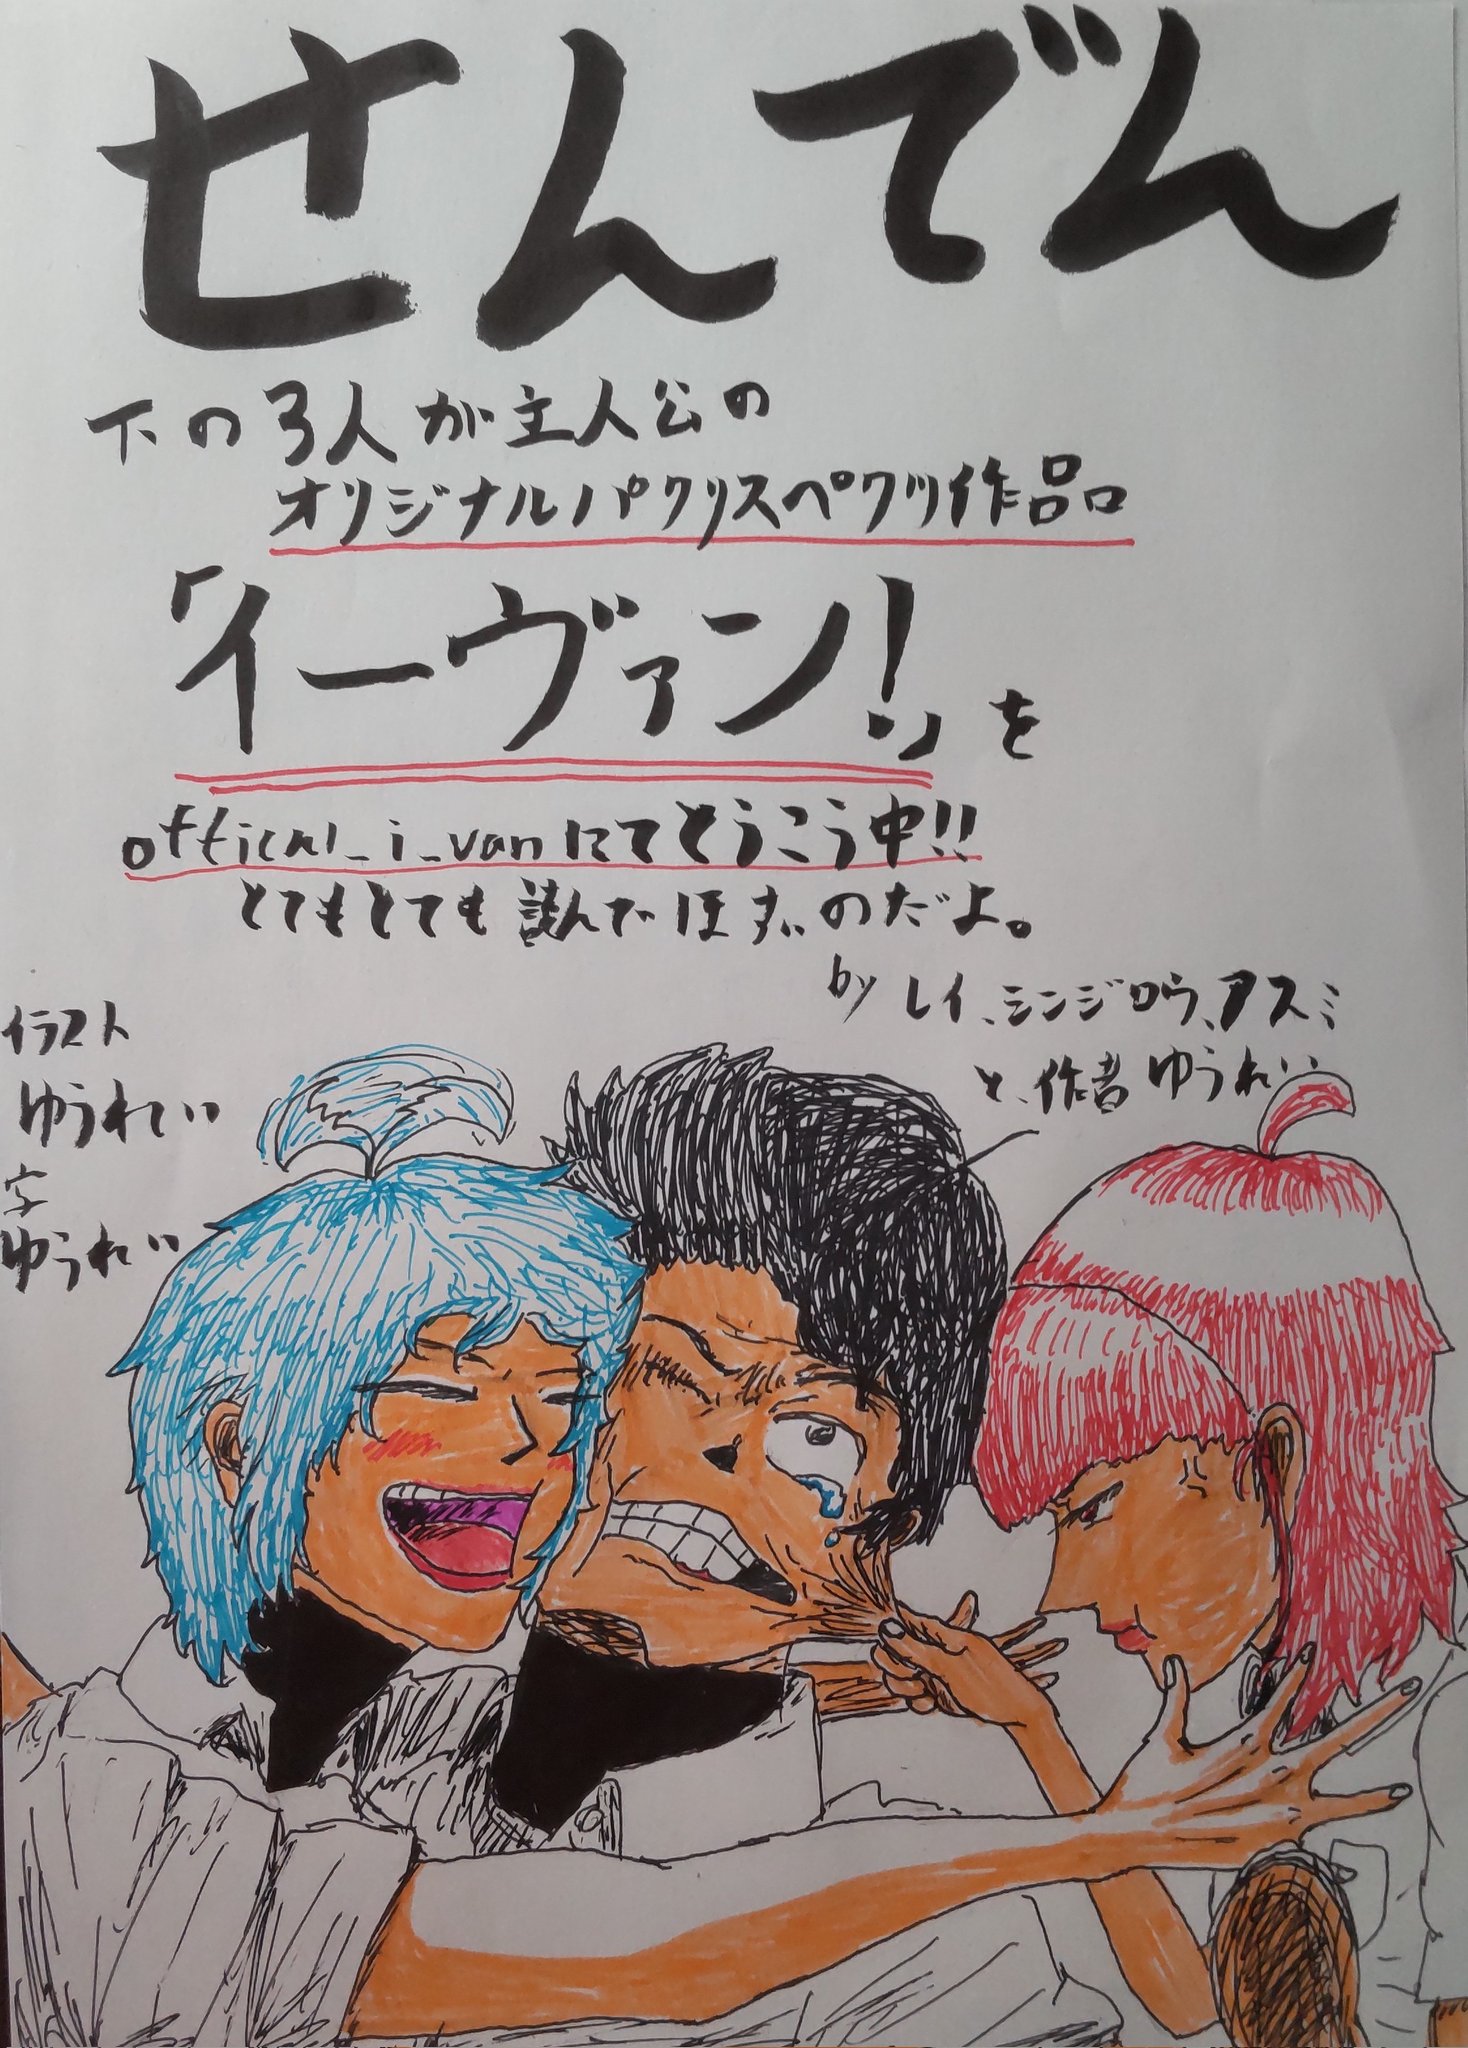 せんでん
下の3人が主人公の
オリジナルパクリスペクツ作品
「イーヴァン!」を
offical_i_vanにてとうこう中!!
とてもとても読んでほすぃのだよ。
by レイ、シンジロウ、アスミ
と、作者 ゆうれい
イラスト
ゆうれい
字
ゆうれい